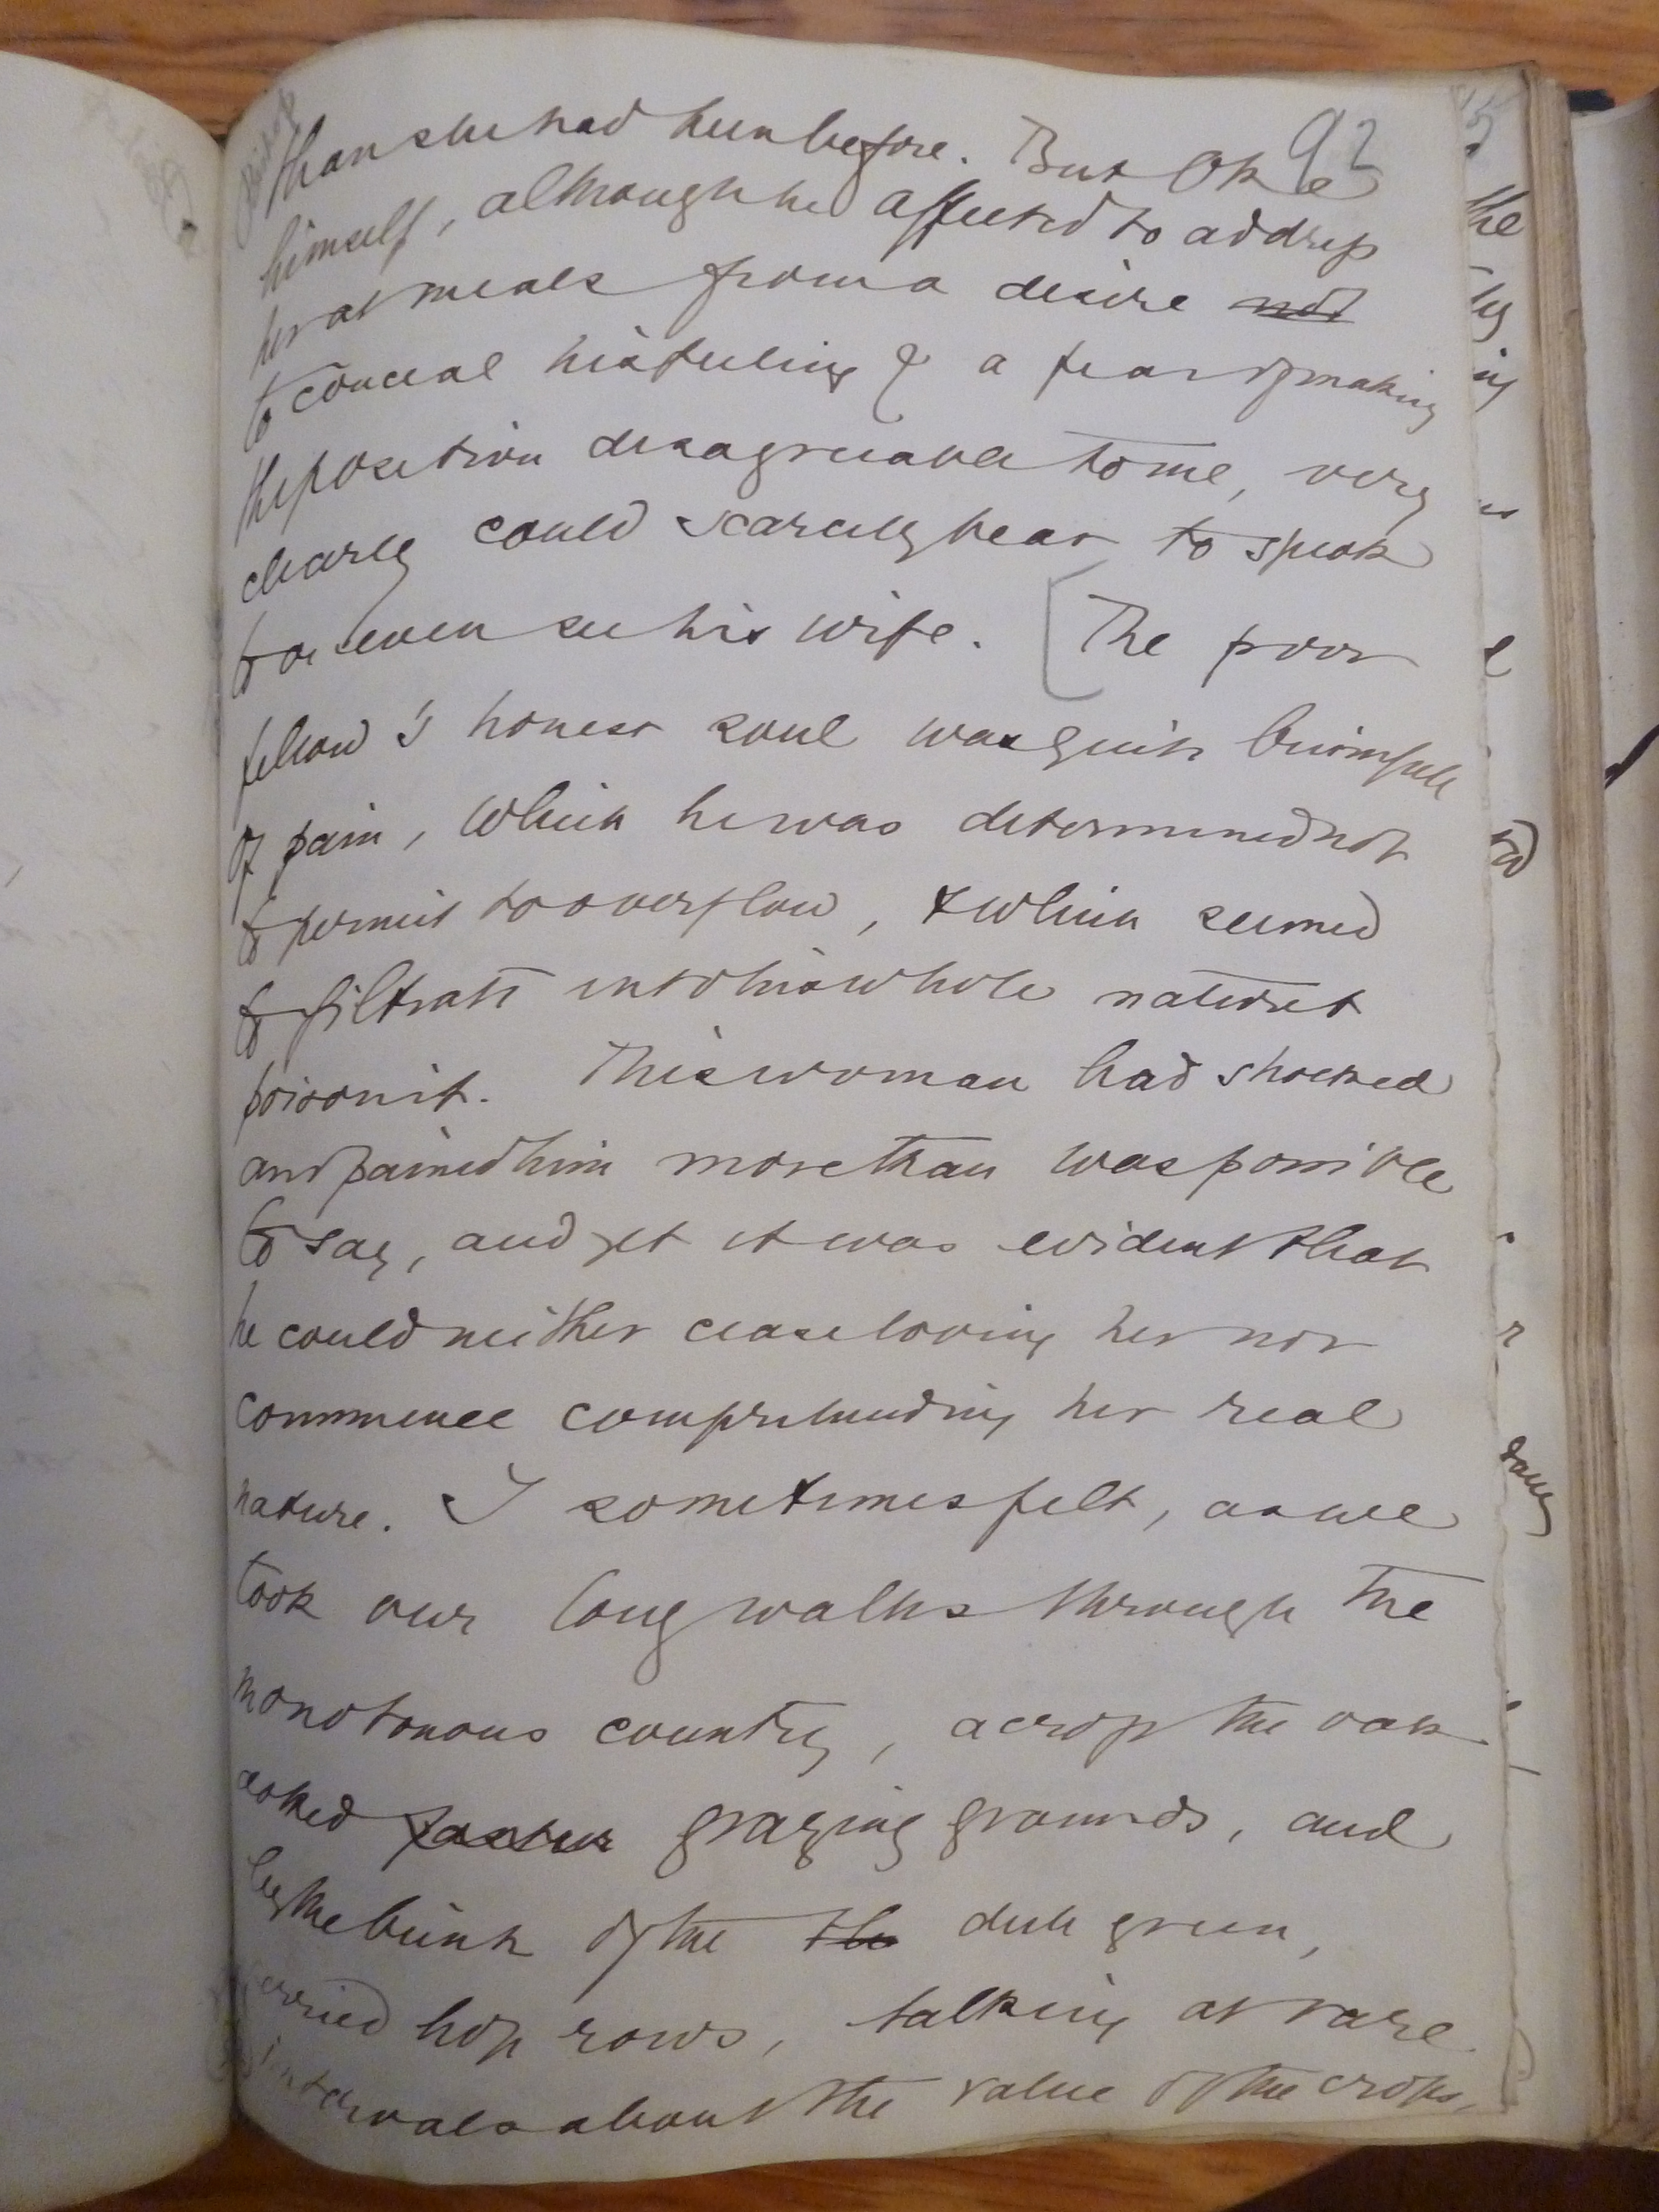 92
than she had been before. But Oke
himself, although he affected to address
her at meals from a desire not
to conceal his feeling & a fear of making
the position disagreeable to me, very
clearly could scarcely bear to speak
to or even see his wife. [The poor
fellow's honest soul was quite brimfull
of pain, which he was determined not
to permit to overflow, & which seemed
to filtrate into his whole nature &
poison it. This woman had shocked
and pained him more than was possible
to say, and yet it was evident that
he could neither cease loving her nor
commence comprehending her real
nature. I sometimes felt, as we
took our long walks through the
monotonous country, across the oak
dotted pasture grazing grounds, and
by the brink of the the dull green,
serried hop rows, talking at rare
intervals about the value of the crops,